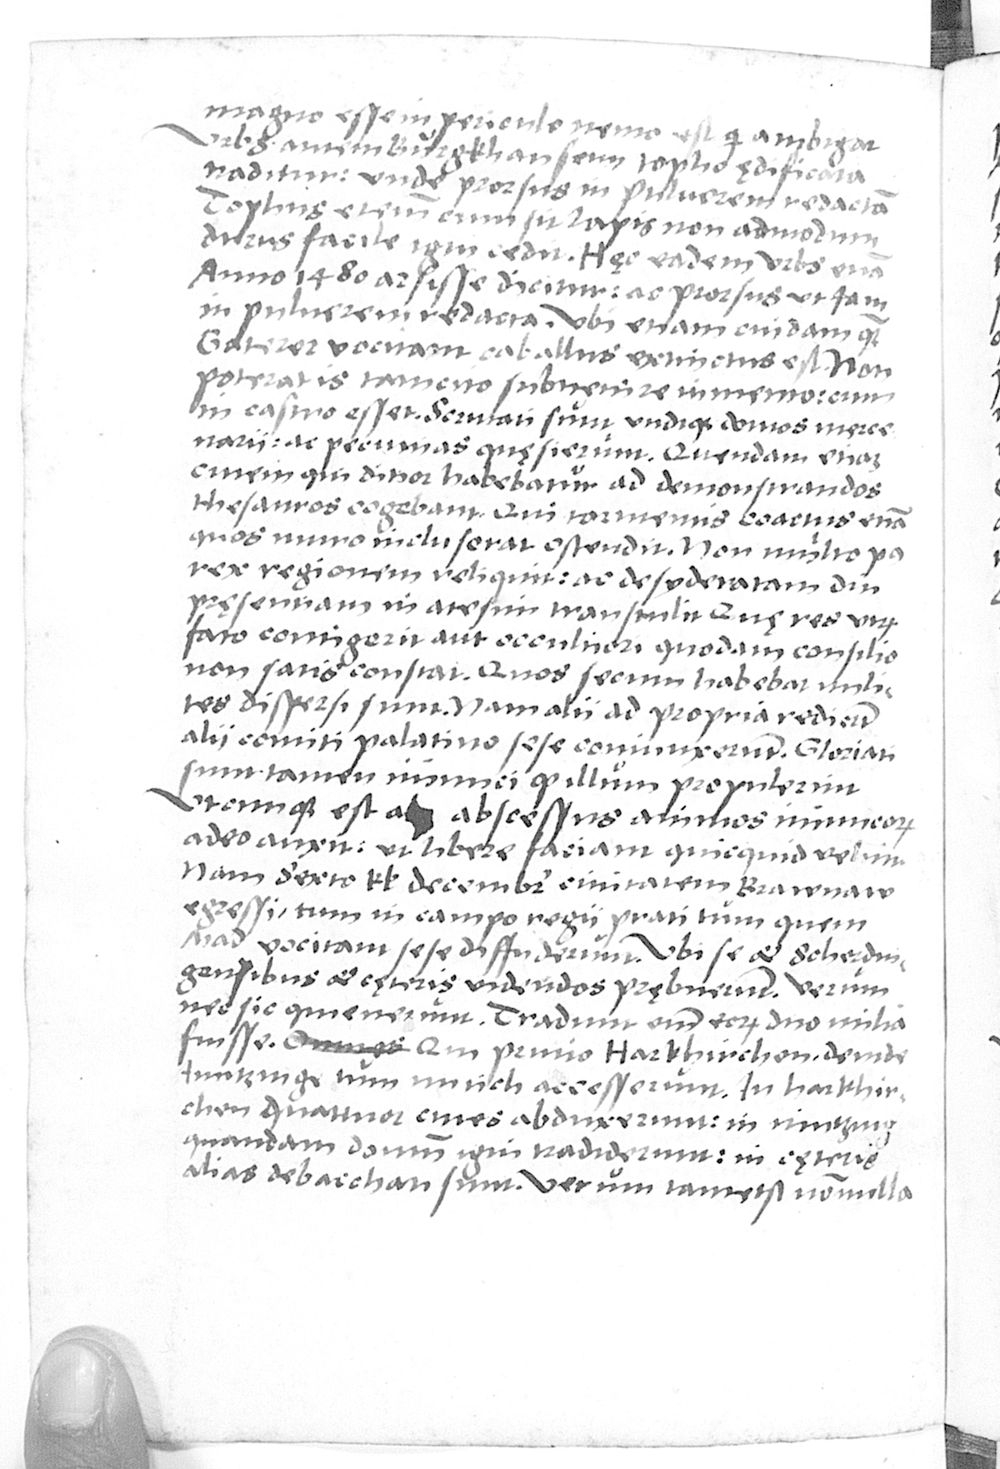 magno esse in periculo nemo est qͥ ambigat
Vrbs autem Burgkhausenn tophio ędificata
traditur: unde prorsus in puluerem redactā
Tophus eteni᷃ cum sit lapis non admodum
durus facile igni cedit. Hęc eadem Vrbs etiā
Anno 1480 arsisse dicitur: ac prorsus ut jam
in puluerem redacta. Vbi etiam cuidam quē
Gaterer vocitant caballus extinctus est. Non
poterat is tam cito subuenire iumento: cum
in castro esset. Scrutati sunt undiqꝫ domos merce
narii: ac pecunias quęsierunt. Quendam etiaꝫ
ciuem qui ditior habebatur ad demonstrandos
thesauros cogebant. Qui tormentis coactus etiā
quos muro incluserat ostendit. Non multo pa
rex regionem reliquit: ac desyderatam diu
pręsentiam in atesim transtulit. Quę res utꝝ
fato contigerit aut occultiori quodam consilio
non satis constat. Quos secum habebat mili-
tes dispersi sunt. Nam alii ad propria redierūt
alii comiti palatino sese coniunxerunt. Gloriati
sunt tamen inimici ꝙ illum propulerint
Vtcunqꝫ est abscessus animos inimicoꝝ
adeo auxit: ut libere faciant quicquid velint.
Nam Sexto kk decembr̄ ciuitatem Brawnaw
egressi, tum in campo regii prati tum quem
Mad vocitant sese diffuderunt. Vbi se & Scherdin-
gensibus & cęteris videndos prębuerūt. Verum
nec sic quieuerunt. Tradunt eni᷃ eoꝝ duo milia
fuisse. Qui primo Harkhirchen. deinde
Imtzinge tum munich accesserunt. In harkhir-
chen Quattuor ciues abduxerunt: in imtzing
quandam domū igni tradiderunt: in cęteris
alias debacchati sunt. Verum tametsi nōnulla